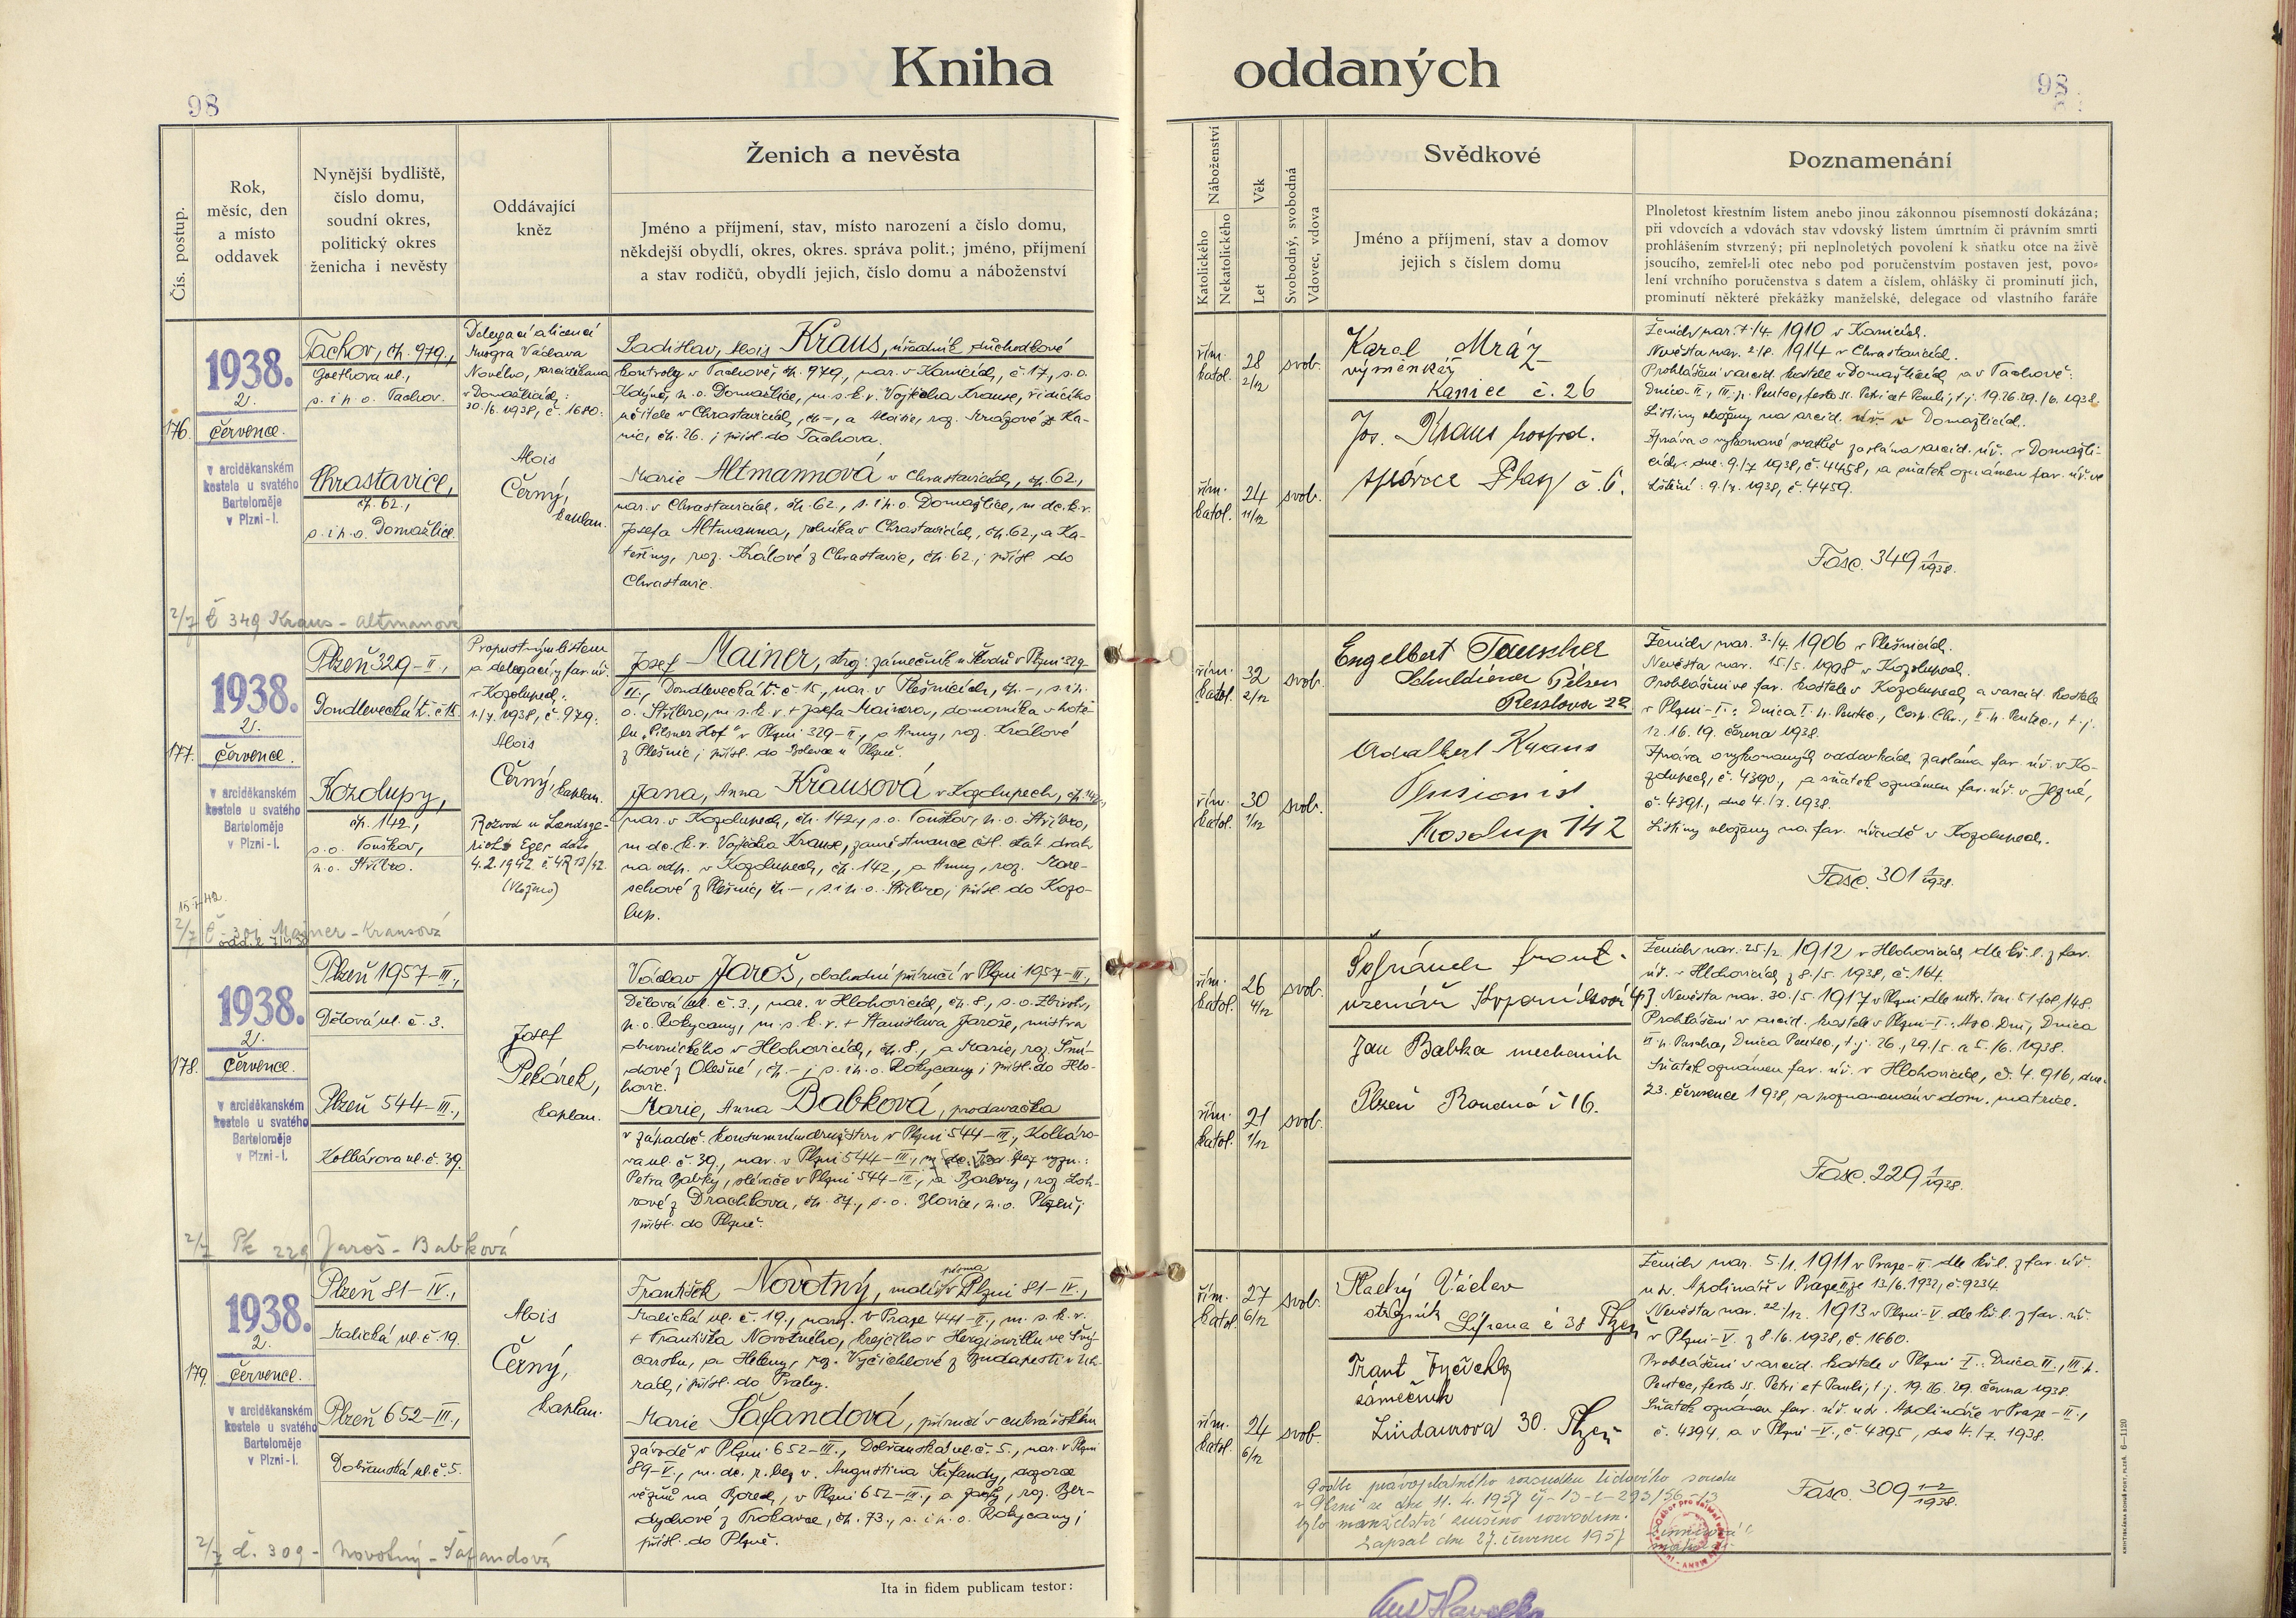 Kniha oddaných
98
98
Čís. postup.
Rok,
měsíc, den
a místo
oddavek
Nynější bydliště,
číslo domu,
soudní okres,
politický okres
ženicha i nevěsty
Oddávající
kněz
Ženich a nevěsta
Jméno a příjmení, stav, místo narození a číslo domu,
někdejší obydlí, okres, okres. správa polit.; jméno, příjmení
a stav rodičů, obydlí jejich, číslo domu a náboženství
Náboženství
Katolického
Nekatolického
Věk
Let
Svobodný, svobodná
Vdovec, vdova
Svědkové
Jméno a příjmení, stav a domov
jejich s číslem domu
Poznamenání
Plnoletost křestním listem anebo jinou zákonnou písemností dokázána;
při vdovcích a vdovách stav vdovský listem úmrtním či právním smrti
prohlášením stvrzený; při neplnoletých povolení k sňatku otce na živě
jsoucího, zemřel-li otec nebo pod poručenstvím postaven jest, povo-
lení vrchního poručenstva s datem a číslem, ohlášky či prominutí jich,
prominutí některé překážky manželské, delegace od vlastního faráře
176.
1938.
2.
července.
v arciděkanském
kostele u svatého
Bartoloměje
v Plzni-I.
Tachov, čp. 979.,
Goethova ul.,
s. i p. o. Tachov.
Chrastavice,
čp. 62.,
s. i p. o. Domažlice.
Delegací a licencí
Msgra Václava
Nového, arciděkana
v Domažlicích:
30./6. 1938, č. 1680.
Alois
Černý,
kaplan.
Ladislav, Alois Kraus, úředník důchodkové
kontroly v Tachově, čp. 979, nar. v Kanicích, č. 17, s. o.
Kdyně, p. o. Domažlice, m. s. k. v. Vojtěcha Krause, řídícího
učitele v Chrastavicích, čp. -, a Marie, roz. Mrázové z Ka-
nic, čp. 26. ; přísl. do Tachova.
Marie Altmannová v Chrastavicích, čp. 62.,
nar. v Chrastavicích, čp. 62., s. i p. o. Domažlice, m. dc. k. v.
Josefa Altmanna, rolníka v Chrastavicích, čp. 62., a Ka-
teřiny, roz. Králové z Chrastavic, čp. 62.; přísl. do
Chrastavic.
řím. katol. 28 2/12 svob.
řím. katol. 24 11/12 svob.
Karel Mráz
výměnkář
Kanice č. 26
Jos. Kraus hospod.
správce Plasy č. 6.
Ženich nar. /4. 1910 v Kanicích.
Nevěsta nar. 2./8. 1914 v Chrastavicích.
Prohlášeni v arcid. kostele v Domažlicích a v Tachově:
Dnica II., III. p. Pentec., festo ss. Petri et Pauli, t. j. 19. 26. 29./6. 1938.
Listiny uloženy na arcid. úř. v Domažlicích.
Zpráva o vykonané svatbě zaslána arcid. úř. v Domažli-
cích dne 9./7. 1938, č. 4458, a sňatek oznámen far. úř. ve
9./7. 1938, č. 4459.
Fasc. 349 1/1938.
2/7 č 349 Kraus - Altmanová
177.
1938.
2.
července.
v arciděkanském
kostele u svatého
Bartoloměje
v Plzni-I.
Plzeň 329-II.,
Dondlevecká tř. č. 15.
Kozolupy,
čp. 142.,
s. o. Touškov,
p. o. Stříbro.
Propustným listem
a delegací z far. úř.
v Kozolupech:
1./7. 1938, č. 979.
Alois
Černý, kaplan.
Rozvod u Landsge-
richt Eger dne
4.2.1942 č. 4R 13/42.
(Vloženo)
Josef Mainer, stroj. zámečník u Škodů v Plzni 329-
II., Dondlevecká tř. č. 15., nar. v Plešnicích, čp. -, s. i p.
o. Stříbro, m. s. k. v. + Josefa Mainera, domovníka v hote-
lu „Pilsner Hof" v Plzni 329-II., a Anny, roz. Králové
z Plešnic; přísl. do Bolevce u Plzně.
Jana, Anna Krausová v Kozolupech, čp. 142.,
nar. v Kozolupech, čp. 142., s. o. Touškov, p. o. Stříbro,
m. dc. k. v. Vojtěcha Krause, zaměstnance čsl. stát. drah
na odp. v Kozolupech, čp. 142., a Anny, roz. Mare-
schové z Plešnic, čp. -, s. i p. o. Stříbro; přísl. do Kozo-
lup.
řím. katol. 32 2/12 svob.
řím. katol. 30 1/12 svob.
Engelbert Tauscher
Schuldiener Pilsen
Resslova 22
Adalbert Kraus
Pensionist
Kosolup 142
Ženich nar. 3./4. 1906 v Plešnicích.
Nevěsta nar. 15./5. 1908 v Kozolupech.
Prohlášeni ve far. kostele v Kozolupech a v arcid. kostele
v Plzni-I.: Dnica I. p. Pentec., Corp. Chr., II. p. Pentec., t. j.
12. 16. 19. června 1938.
Zpráva o vykonaných oddavkách zaslána far. úř. v Ko-
zolupech, č. 4390., a sňatek oznámen far. úř. v Jezné,
č. 4391., dne 4./7. 1938.
Listiny uloženy na far. úřadě v Kozolupech.
Fasc. 301 1/1938.
2/7 č 301 Mainer - Krausová
178.
1938.
2.
července.
v arciděkanském
kostele u svatého
Bartoloměje
v Plzni-I.
Plzeň 1957-III.,
Dělová ul. č. 3.
Plzeň 544-III.,
Kollárova ul. č. 39.
Josef
Pekárek,
kaplan.
Václav Jaroš, obchodní příručí v Plzni 1957-III.,
Dělová ul. č. 3., nar. v Hlohovicích, čp. 8., s. o. Zbiroh,
p. o. Rokycany, m. s. k. v. + Stanislava Jaroše, mistra
obuvnického v Hlohovicích, čp. 8., a Marie, roz. Smí-
dové z Olešné, čp. -; s. i p. o. Rokycany; přísl. do Hlo-
hovic.
Marie, Anna Babková, prodavačka
v západoč. konsumním družstvu v Plzni 544-III., Kolláro-
va ul. č. 39., nar. v Plzni 544-III., m. dc. bez vyzn.:
Petra Babky, slévače v Plzni 544-III., a Barbory, roz. Loh-
rové z Drachkova, čp. 87., s. o. Blovice, p. o. Plzeň;
přísl. do Plzně.
řím. katol. 26 4/12 svob.
řím. katol. 21 1/12 svob.
uzenář
Jan Babka mechanik
Plzeň Roudná č 16.
Ženich nar. 25./2. 1912 v Hlohovicích dle kř. l. z far.
úř. v Hlohovicích z 8./5. 1938, č. 164.
Nevěsta nar. 30./5. 1917 v Plzni dle mtr. tom. 51 fol. 148.
Prohlášeni v arcid. kostele v Plzni-I.: Asc. Dni, Dnica
VI. p. Pascha, Dnica Pentec., t. j. 26., 29./5. a 5./6. 1938.
Sňatek oznámen far. úř. v Hlohovicích, č. 4.916, dne
23. července 1938, a poznamenán v dom. matrice.
Fasc. 229 1/1938.
2/7 Pk 229 Jaroš - Babková
179.
1938.
2.
července.
v arciděkanském
kostele u svatého
Bartoloměje
v Plzni-I.
Plzeň 81-IV.,
Malická ul. č. 19.
Plzeň 652-III.,
Dobřanská ul. č. 5.
Alois
Černý,
kaplan.
František Novotný, malíř písma v Plzni 81-IV.,
Malická ul. č. 19., naroz. v Praze 441-II., m. s. k. v.
+ Františka Novotného, krejčího v Hergiswillu ve Švý-
carsku, a Heleny, roz. Vyčichlové z Budapešti v Uh-
rách; přísl. do Prahy.
Marie Šafandová, příručí v cukrářském
závodě v Plzni 652-III., Dobřanská ul. č. 5., nar. v Plzni
89-V., m. dc. p. bez v. Augustina Šafandy, dozorce
vězňů na Borech, v Plzni 652-III., a , roz. Ber-
dychové z Trokavce, čp. 73., s. i p. o. Rokycany;
přísl. do Plzně.
řím. katol. 27 6/12 svob.
řím. katol. 24 6/12 svob.
Václav
strážník č 38 Plzeň
Frant Vyčichl
zámečník
Lindaurova 30. Plzeň
Ženich nar. 5/1. 1911 v Praze-II. dle kř. l. z far. úř.
u sv. Apolináře v Praze II ze 13/6. 1932, č. 9234.
Nevěsta nar. 22/12. 1913 v Plzni-V. dle kř. l. z far. úř.
v Plzni-V. z 8./6. 1938, č. 1660.
Prohlášeni v arcid. kostele v Plzni I.: Dnica II., III. p.
Pentec., festo ss. Petri et Pauli, t. j. 19. 26. 29. června 1938.
Sňatek oznámen far. úř. u sv. Apolináře v Praze-II.,
č. 4394, a v Plzni-V., č. 4395, dne 4./7. 1938.
Fasc. 309 1-2/1938.
Podle pravoplatného rozsudku lidového soudu
v Plzni ze dne 11. 4. 1957 čj-13-C-293/56-13
bylo manželství zrušeno rozvodem.
Zapsal dne 27. července 1957
2/7 č. 309 - Novotný - Šafandová
Ita in fidem publicam testor: